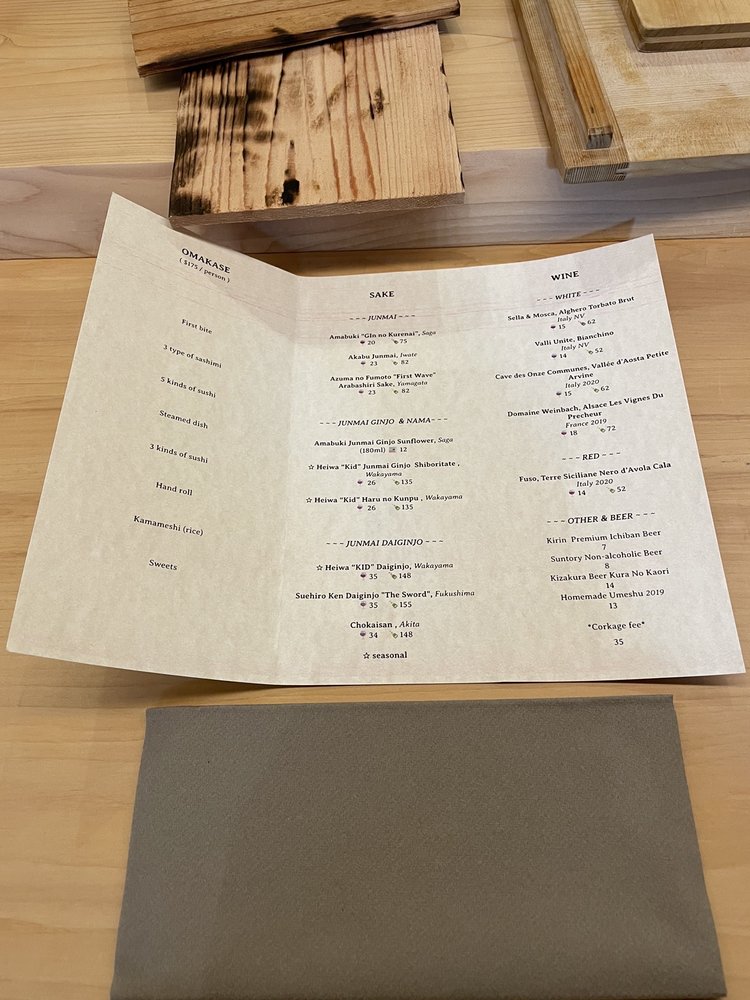 OMAKASE
( $175 / person )
First bite
3 type of sashimi
5 kinds of sushi
Steamed dish
3 kinds of sushi
Hand roll
Kamameshi (rice)
Sweets
SAKE
~ ~ ~ JUNMAI ~ ~ ~
Amabuki "GIn no Kurenai", Saga
20 75
Akabu Junmai, Iwate
23 82
Azuma no Fumoto "First Wave"
Arabashiri Sake, Yamagata
23 82
~ ~ ~ JUNMAI GINJO & NAMA~ ~ ~
Amabuki Junmai Ginjo Sunflower, Saga
(180ml) 12
☆ Heiwa "Kid" Junmai Ginjo Shiboritate ,
Wakayama
26 135
☆ Heiwa "Kid" Haru no Kunpu , Wakayama
26 135
~ ~ ~ JUNMAI DAIGINJO ~ ~ ~
☆ Heiwa "KID" Daiginjo, Wakayama
35 148
Suehiro Ken Daiginjo "The Sword", Fukushima
35 155
Chokaisan , Akita
34 148
☆ seasonal
WINE
~ ~ ~ WHITE ~ ~ ~
Sella & Mosca, Alghero Torbato Brut
Italy NV
15 62
Valli Unite, Bianchino
Italy NV
14 52
Cave des Onze Communes, Vallée d'Aosta Petite
Arvine
Italy 2020
15 62
Domaine Weinbach, Alsace Les Vignes Du
Precheur
France 2019
18 72
~ ~ ~ RED ~ ~ ~
Fuso, Terre Siciliane Nero d'Avola Cala
Italy 2020
14 52
~ ~ ~ OTHER & BEER ~ ~ ~
Kirin Premium Ichiban Beer
7
Suntory Non-alcoholic Beer
8
Kizakura Beer Kura No Kaori
14
Homemade Umeshu 2019
13
*Corkage fee*
35